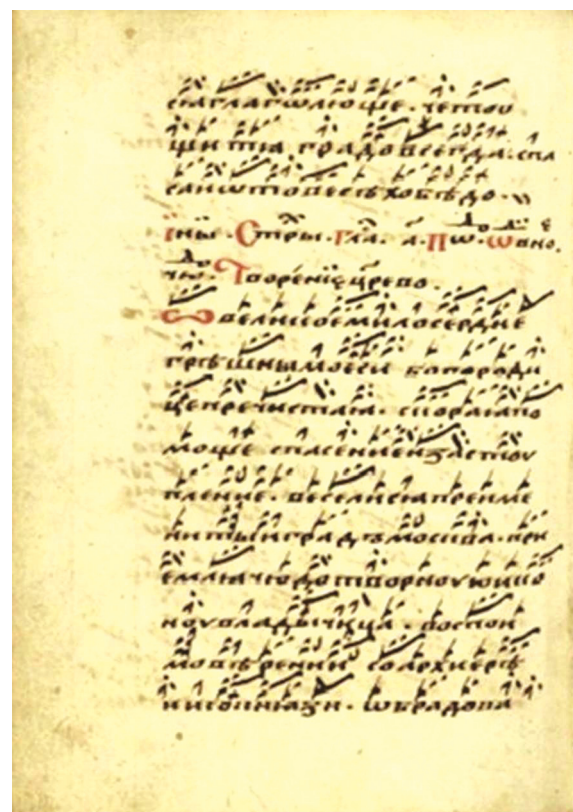 сѧ глаголюще . четоу
щи тѧ градо всегда . спа
саи ѿ весѣхо бѣдо .
Ины . Стры . гла . а . По .
Творение царево .
Ѡ великое милосердие
грѣшнымо еси богороди
це пречистаѧ . скораѧ по
моще спасение и застоу
пление . веселисѧ преиме
нитыи граде москва . при
емлѧ чюдотворноую ико
ноу владычица . воспои
мо вѣрении со архиерѣ
и и со кнѧзи . ѡбрадова